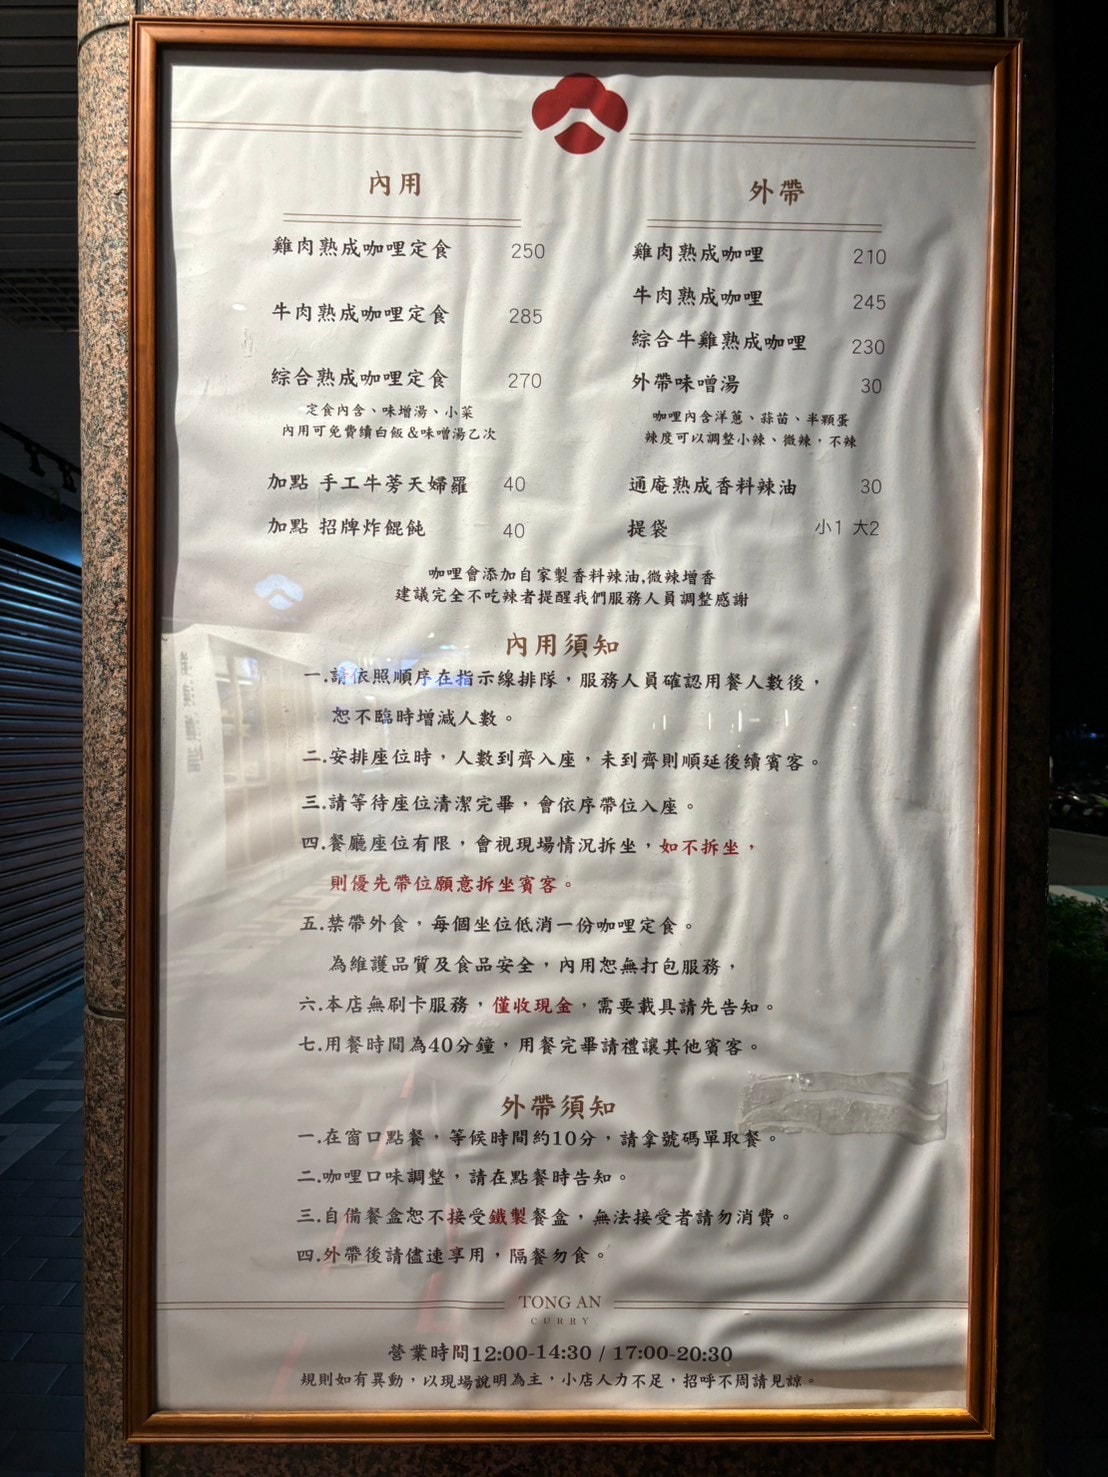 內用
雞肉熟成咖哩定食 250
牛肉熟成咖哩定食 285
綜合熟成咖哩定食 270
定食內含、味增湯、小菜
內用可免費續白飯&味噌湯乙次
加點 手工牛蒡天婦羅 40
加點 招牌炸餛飩 40
外帶
雞肉熟成咖哩 210
牛肉熟成咖哩 245
綜合牛雞熟成咖哩 230
外帶味噌湯 30
咖哩內含洋蔥、蒜苗、半顆蛋
辣度可以調整小辣、微辣，不辣
通庵熟成香料辣油 30
提袋 小1 大2
咖哩會添加自家製香料辣油,微辣增香
建議完全不吃辣者提醒我們服務人員調整感謝
內用須知
一.請依照順序在指示線排隊，服務人員確認用餐人數後，
恕不臨時增減人數。
二.安排座位時，人數到齊入座，未到齊則順延後續賓客。
三.請等待座位清潔完畢，會依序帶位入座。
四.餐廳座位有限，會視現場情況拆坐，如不拆坐，
則優先帶位願意拆坐賓客。
五.禁帶外食，每個坐位低消一份咖哩定食。
為維護品質及食品安全，內用恕無打包服務，
六.本店無刷卡服務，僅收現金，需要載具請先告知。
七.用餐時間為40分鐘，用餐完畢請禮讓其他賓客。
外帶須知
一.在窗口點餐，等候時間約10分，請拿號碼單取餐。
二.咖哩口味調整，請在點餐時告知。
三.自備餐盒恕不接受鐵製餐盒，無法接受者請勿消費。
四.外帶後請儘速享用，隔餐勿食。
TONG AN
CURRY
營業時間12:00-14:30 / 17:00-20:30
規則如有異動，以現場說明為主，小店人力不足，招呼不周請見諒。